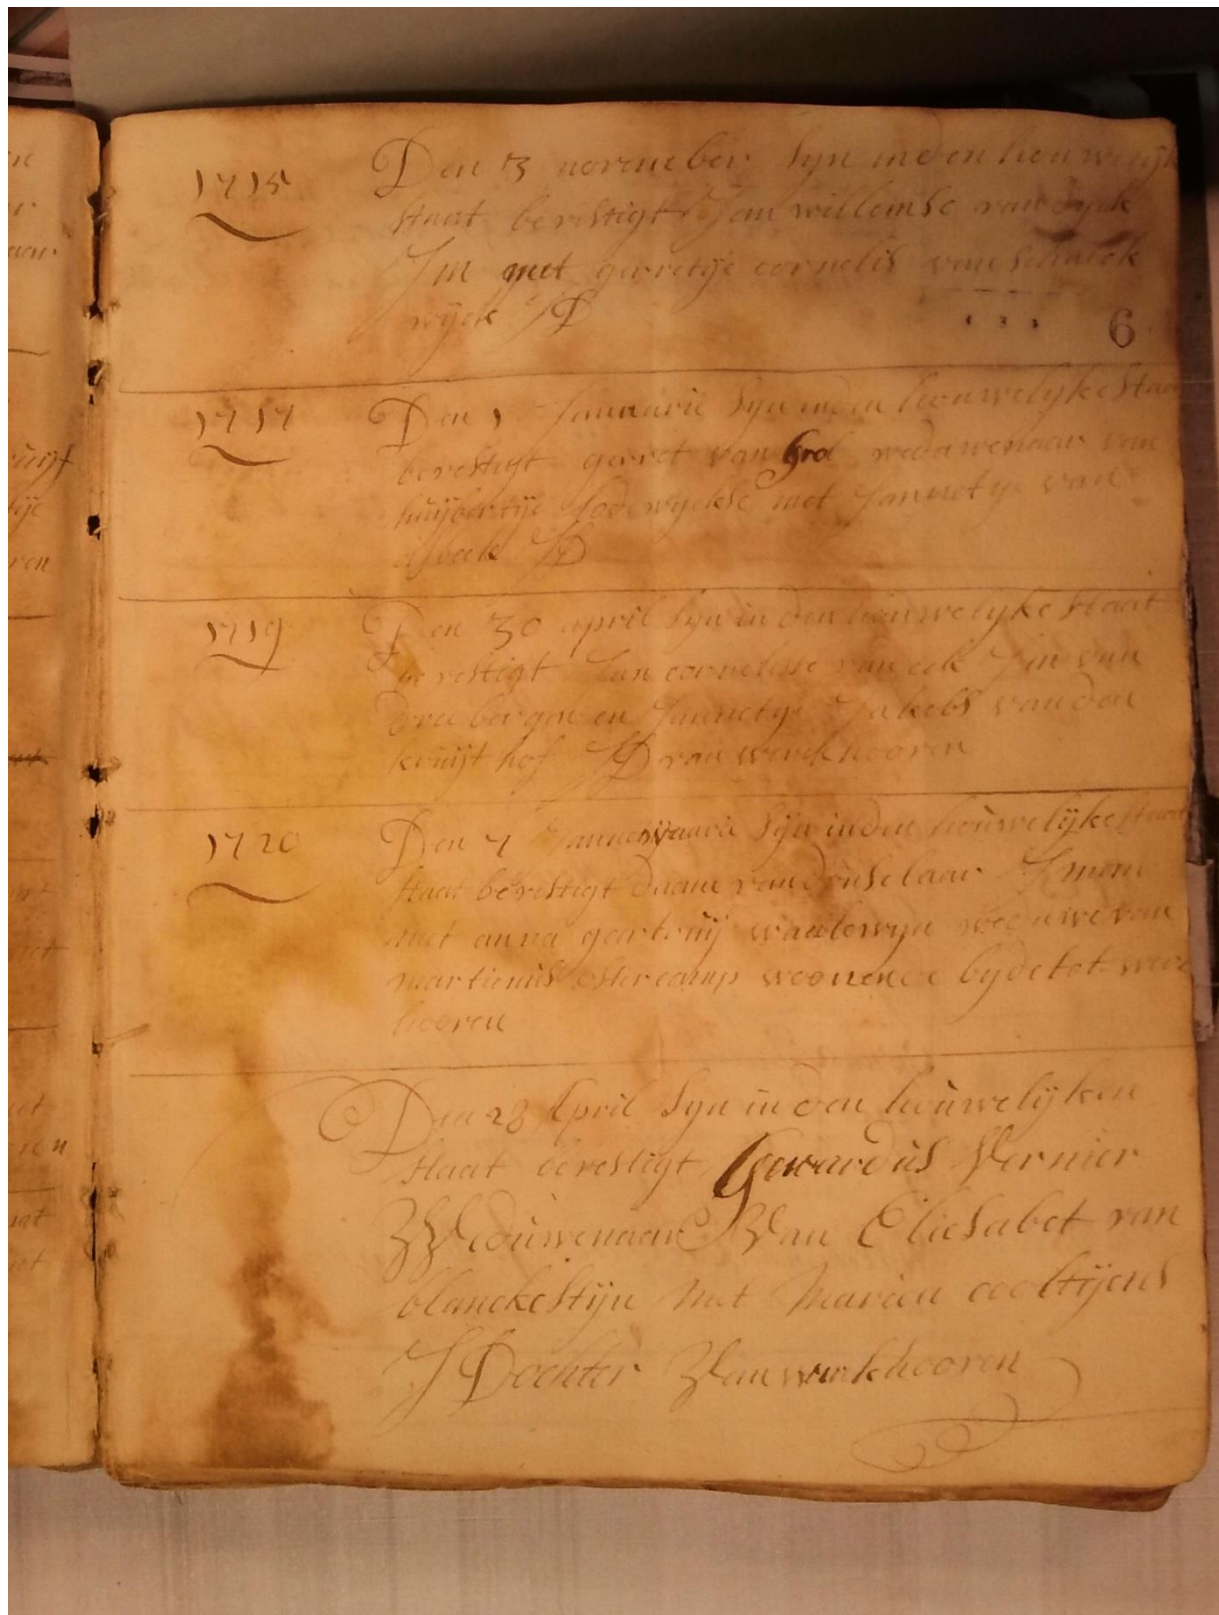 1715 Den 3 novemeber syn in den houwelijk
staat bevestigt Jan willemse van dyck
JM met gerretije cornelis van schalck
wijck JD
6
1717 Den 1 Januarie syn in den houwelyke staat
bevestigt gerret van Grol weduwenaar van
huijbertije lodewyckse met Jannetye van
JD
1719 Den 30 april syn in den houwelyke staat
bevestigt Jan cornelisse van eck Jm van
drie bergen en Jannetye Jakobs van den
kruijt hof JD van werckhooren
1720 Den 7 syn in den houwelijke staat
staat bevestigt daam van druselaar Jmen
met anna geertruij weduwe van
martienus ostercamp woonende bijde tot werc
hooren
Den 28 April syn in den houwelijken
staat bevestigt Gerardus Vernier
Weduwenaar Van Eliesabet van
blanckestijn met Maria cooltijens
J Dochter Van werkhooren